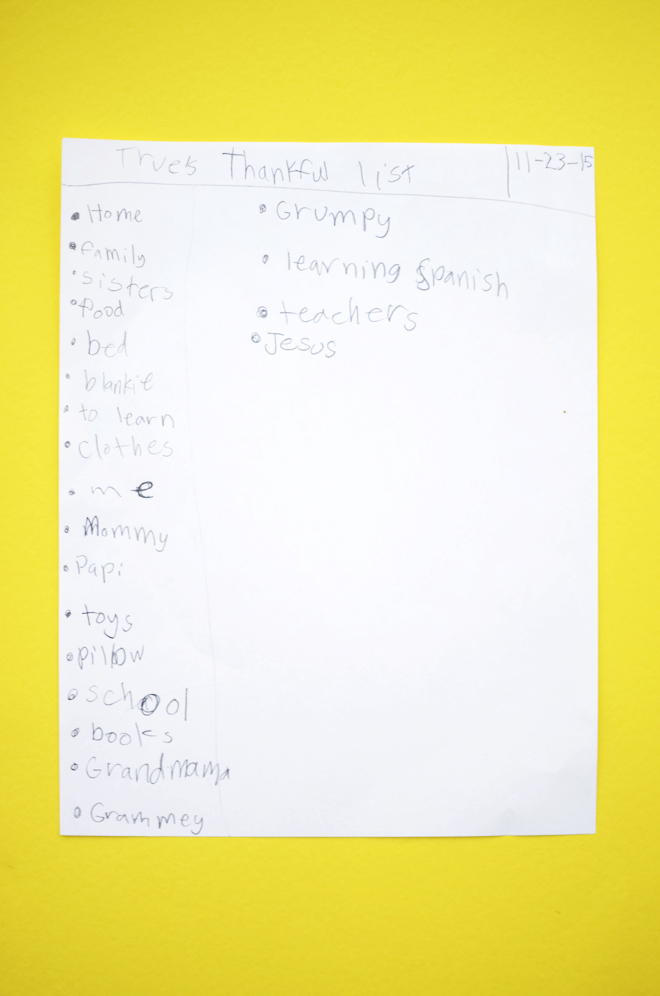 True's Thankful list 11-23-15
• Home
• family
• sisters
• food
• bed
• blankie
• to learn
• Clothes
• me
• Mommy
• Papi
• toys
• pillow
• school
• books
• Grandmama
• Grammey
• Grumpy
• learning Spanish
• teachers
• Jesus